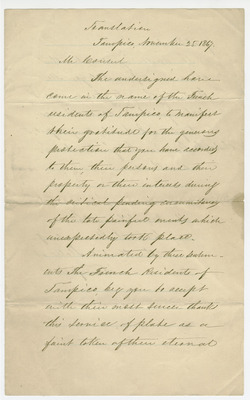 Translation
Tampico November 25 1867.
Mr Consul
The undersigned have
come in the name of the French
residents of Tampico to manifest
their gratitude for the generous
protection that you have accorded
to them their persons and their
property or their interests during
the critical
of the late painful events which
unexpectedly took place.
Animated by these senti-
ments The French Residents of
Tampico beg you to accept
with their most sincere thanks
this service of plate as a
faint token of their eternal